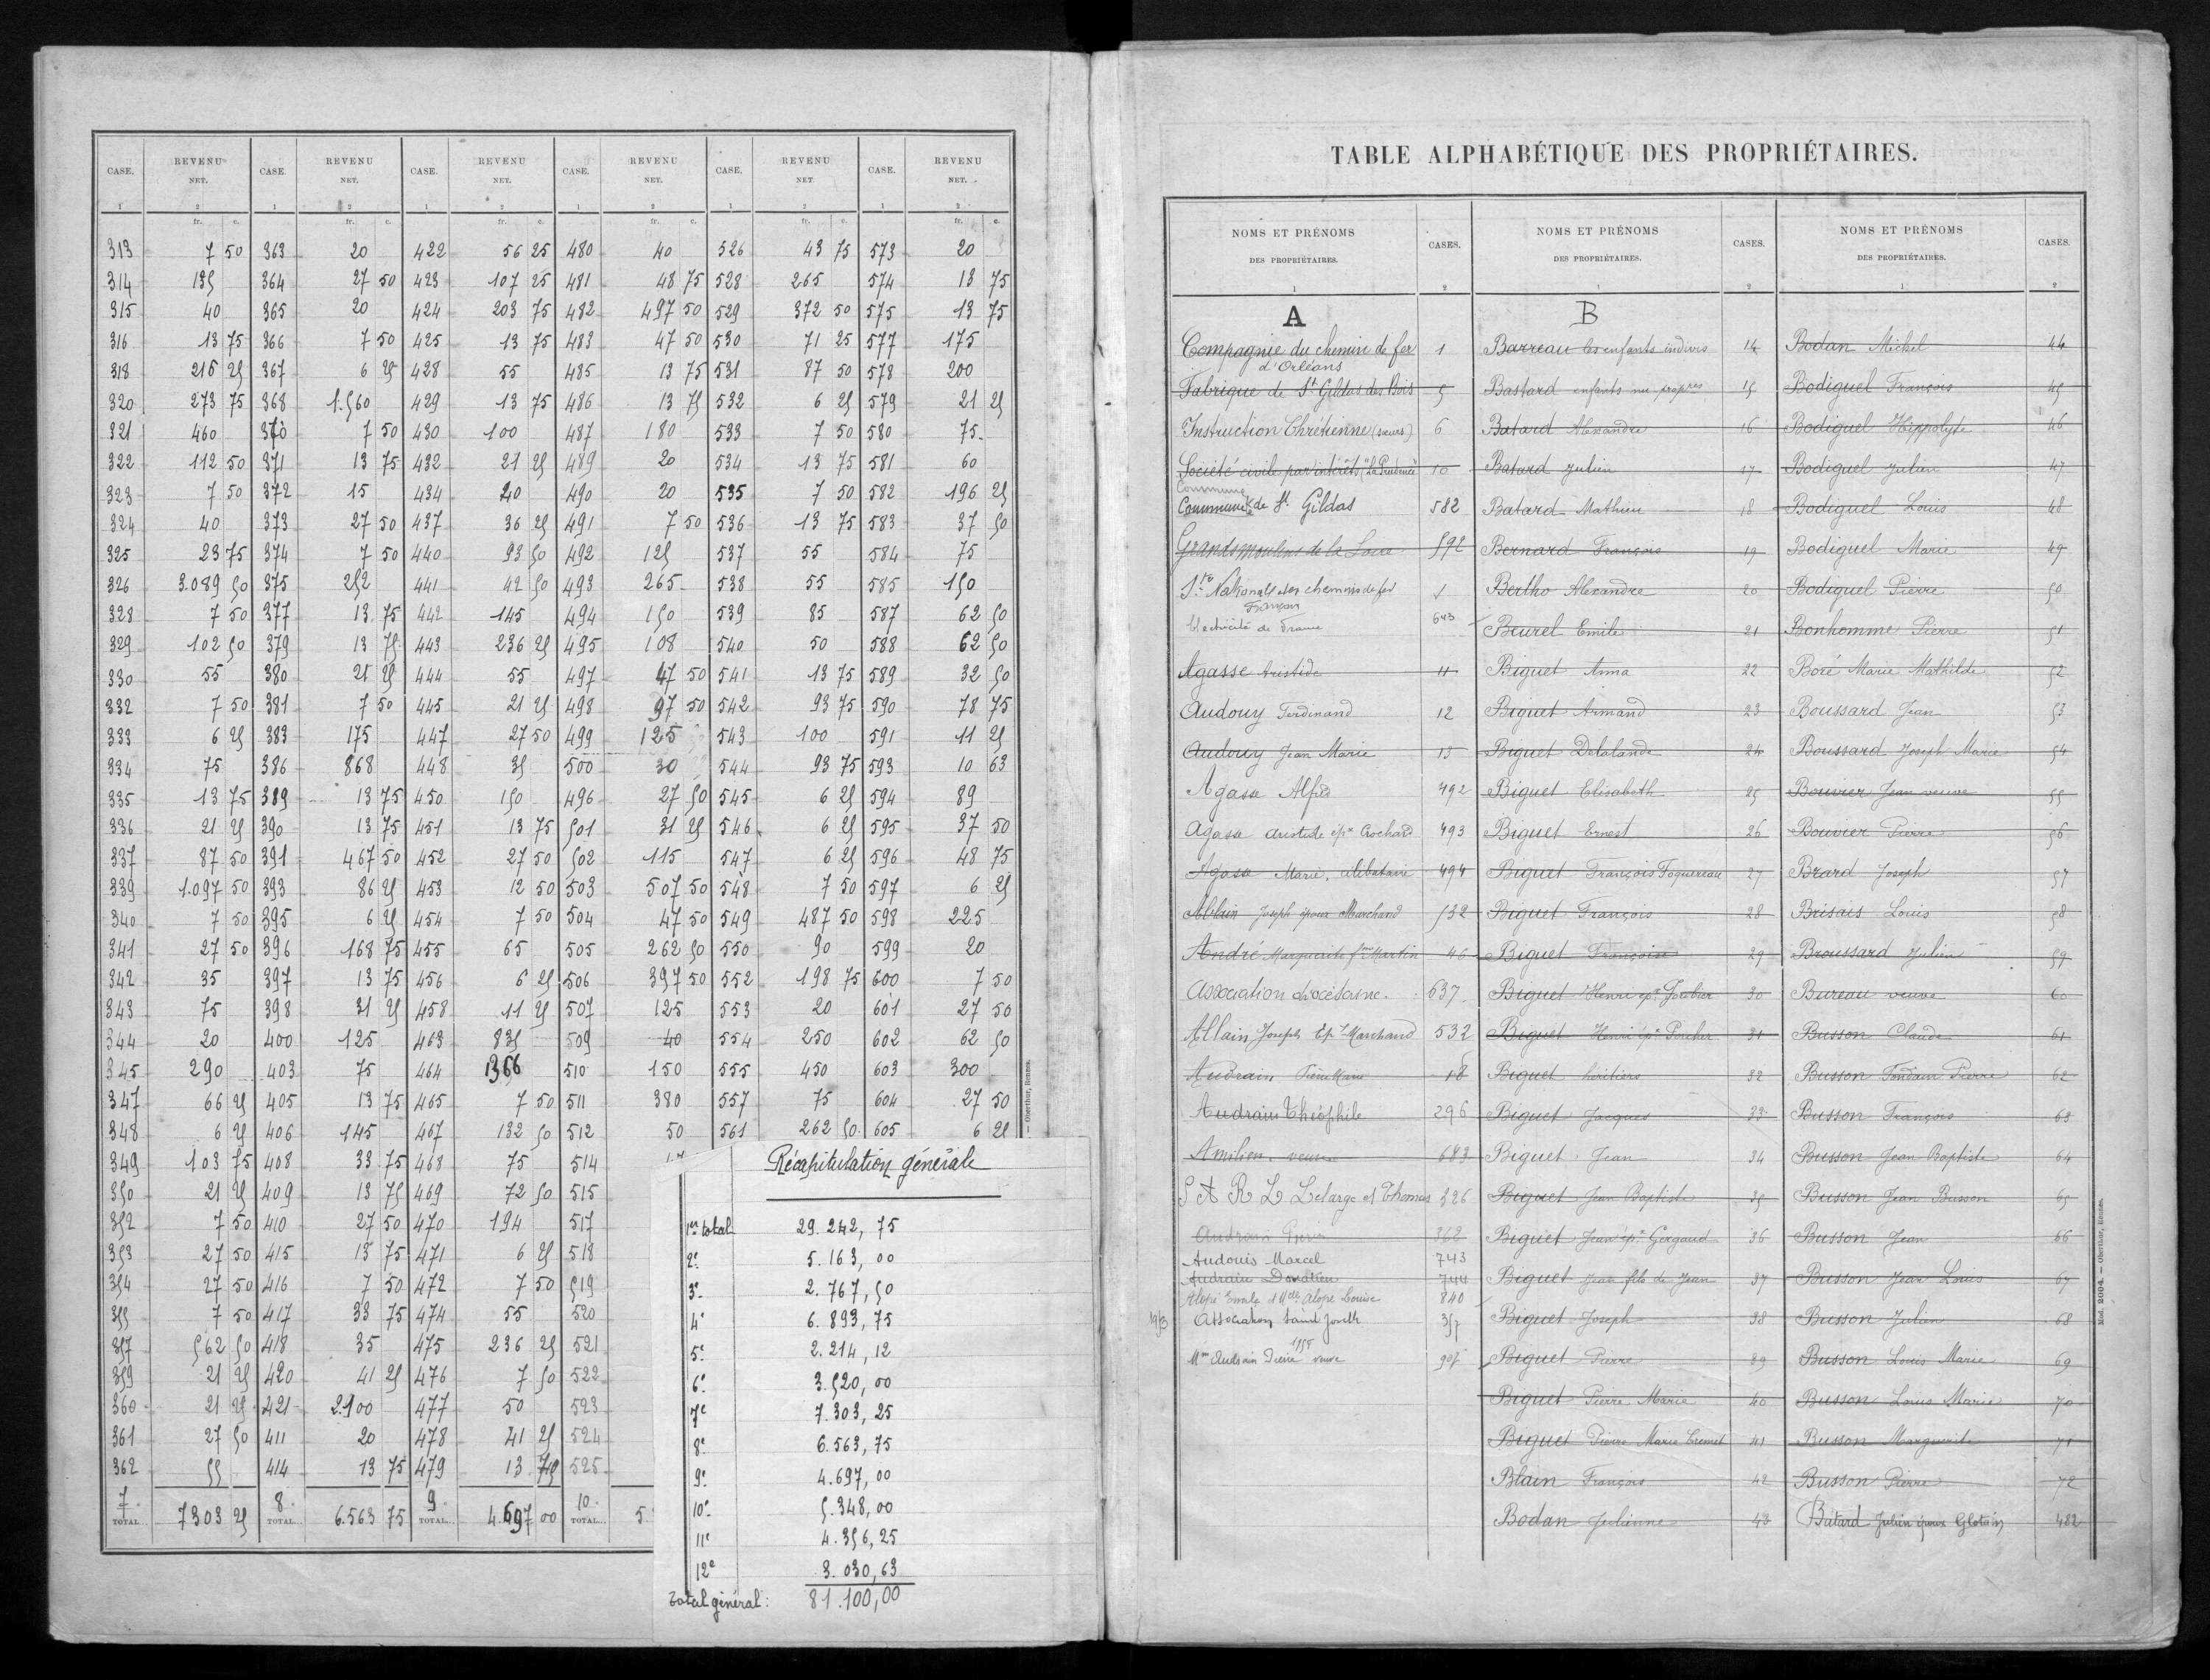 CASE. REVENU NET. CASE. REVENU NET. CASE. REVENU NET. CASE. REVENU NET. CASE. REVENU NET. CASE. REVENU NET.
1 2 1 2 1 2 1 2 1 2 1 2
fr. c. fr. c. fr. c. fr. c. fr. c. fr. c.
313 7 50 363 20 422 56 25 480 40 526 43 75 573 20
314 135 364 27 50 423 107 25 481 48 75 528 265 574 13 75
315 40 365 20 424 203 75 482 497 50 529 372 50 575 13 75
316 13 75 366 7 50 425 13 75 483 47 50 530 71 25 577 175
318 215 25 367 6 25 428 55 485 13 75 531 87 50 578 200
320 273 75 368 1.560 429 13 75 486 13 75 532 6 25 579 21 25
321 460 370 7 50 430 100 487 180 533 7 50 580 75
322 112 50 371 13 75 432 21 25 489 20 534 13 75 581 60
323 7 50 372 15 434 20 490 20 535 7 50 582 196 25
324 40 373 27 50 437 36 25 491 7 50 536 13 75 583 37 50
325 23 75 374 7 50 440 93 50 492 125 537 55 584 75
326 3.089 50 375 252 441 42 50 493 265 538 55 585 150
328 7 50 377 13 75 442 145 494 150 539 85 587 62 50
329 102 50 379 13 75 443 236 25 495 108 540 50 588 62 50
330 55 380 21 25 444 55 497 47 50 541 13 75 589 32 50
332 7 50 381 7 50 445 21 25 498 97 50 542 93 75 590 78 75
333 6 25 383 175 447 27 50 499 125 543 100 591 11 25
334 75 386 868 448 35 500 30 544 93 75 593 10 63
335 13 75 389 13 75 450 150 496 27 50 545 6 25 594 89
336 21 25 390 13 75 451 13 75 501 31 25 546 6 25 595 37 50
337 87 50 391 467 50 452 27 50 502 115 547 6 25 596 48 75
339 1.097 50 393 86 25 453 12 50 503 507 50 548 7 50 597 6 25
340 7 50 395 6 25 454 7 50 504 47 50 549 487 50 598 225
341 27 50 396 168 75 455 65 505 262 50 550 90 599 20
342 35 397 13 75 456 6 25 506 397 50 552 198 75 600 7 50
343 75 398 31 25 458 11 25 507 125 553 20 601 27 50
344 20 400 125 463 835 509 40 554 250 602 62 50
345 290 403 75 464 1366 510 150 555 450 603 300
347 66 25 405 13 75 465 7 50 511 380 557 75 604 27 50
348 6 25 406 145 467 132 50 512 50 561 262 50 605 6 25
349 103 75 408 33 75 468 75 514
350 21 25 409 13 75 469 72 50 515
352 7 50 410 27 50 470 194 517
353 27 50 415 13 75 471 6 25 518
354 27 50 416 7 50 472 7 50 519
355 7 50 417 33 75 474 55 520
357 562 50 418 35 475 236 25 521
359 21 25 420 41 25 476 7 50 522
360 21 25 421 2.100 477 50 523
361 27 50 411 20 478 41 25 524
362 55 414 13 75 479 13 525
7 TOTAL.. 7303 25 8 TOTAL.. 6.563 75 9 TOTAL.. 4.697 00 10 TOTAL.. 5.
Oberthur, Rennes.
Récapitulation générale
1er total 29.242,75
2e 5.163,00
3e 2.767,50
4e 6.893,75
5e 2.214,12
6e 3.520,00
7e 7.303,25
8e 6.563,75
9e 4.697,00
10e 5.348,00
11e 4.356,25
12e 3.030,63
Total général: 81.100,00
TABLE ALPHABÉTIQUE DES PROPRIÉTAIRES.
NOMS ET PRÉNOMS DES PROPRIÉTAIRES. CASES. NOMS ET PRÉNOMS DES PROPRIÉTAIRES. CASES. NOMS ET PRÉNOMS DES PROPRIÉTAIRES. CASES.
1 2 1 2 1 2
A
Compagnie du chemin de fer d'Orléans 1
Fabrique de St Gildas des Bois 5
Instruction Chrétienne (sœurs) 6
Société civile par intérêts 10
Commune
Commune de St Gildas 582
Grands moulins de la Loire 592
Sté Nationale des chemins de fer Français 1
Electricité de France 643
Agasse Aristide 11
Audouy Ferdinand 12
Audouy Jean Marie 13
Agasse Alfred 492
Agasse Aristide ép. Crochard 493
Agasse Marie, célibataire 494
Allain Joseph époux Marchand 532
André Marguerite fme Martin 46
Association diocésaine. 637
Allain Joseph Ép. Marchand 532
Audrain 18
Audrain Théophile 296
Amilien veuve 683
S A R L Lelarge et Thomas 326
Audrain Pierre 362
Audouis Marcel 743
Audrain Donatien 744
840
Association Saint Joseph 357
Mme Audrain Pierre veuve 907
B
Barreau les enfants indivis 14
Bastard enfants nu propres 15
Batard Alexandre 16
Batard Julien 17
Batard Mathieu 18
Bernard François 19
Bertho Alexandre 20
Beurel Emile 21
Biguet Anna 22
Biguet Armand 23
Biguet Delalande 24
Biguet Elisabeth 25
Biguet Ernest 26
Biguet François Foquereau 27
Biguet François 28
Biguet Françoise 29
Biguet Henri ép. Joubier 30
Biguet Henri ép. Porcher 31
Biguet héritiers 32
Biguet Jacques 33
Biguet Jean 34
Biguet Jean Baptiste 35
Biguet Jean ép. Gergaud 36
Biguet Jean fils de Jean 37
Biguet Joseph 38
Biguet Pierre 39
Biguet Pierre Marie 40
Biguet Pierre Marie Cremet 41
Blain François 42
Bodan Julienne 43
Bodan Michel 44
Bodiguel François 45
Bodiguel Hippolyte 46
Bodiguel Julien 47
Bodiguel Louis 48
Bodiguel Marie 49
Bodiguel Pierre 50
Bonhomme Pierre 51
Boré Marie Mathilde 52
Boussard Jean 53
Boussard Joseph Marie 54
Bouvier Jean veuve 55
Bouvier Pierre 56
Brard Joseph 57
Brisais Louis 58
Broussard Julien 59
Bureau veuve 60
Busson Claude 61
Busson Fondain Pierre 62
Busson François 63
Busson Jean Baptiste 64
Busson Jean Busson 65
Busson Jean 66
Busson Jean Louis 67
Busson Julien 68
Busson Louis Marie 69
Busson Louis Marie 70
Busson Marguerite 71
Busson Pierre 72
Batard Julien époux Glotain 482
Mod. 2004. — Oberthur, Rennes.